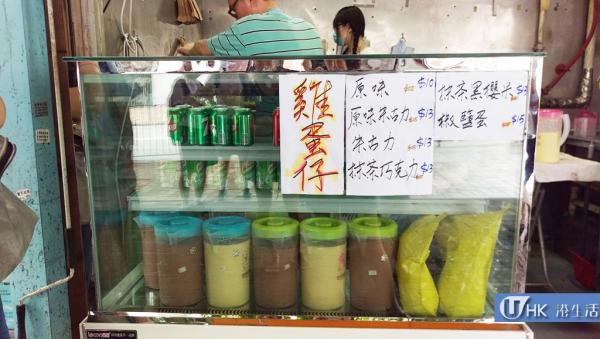 雞蛋仔
原味 $10
原味朱古力 $13
朱古力 $13
抹茶巧克力 $13
抹茶黑櫻
椒鹽蛋 $15
UHK 港生活